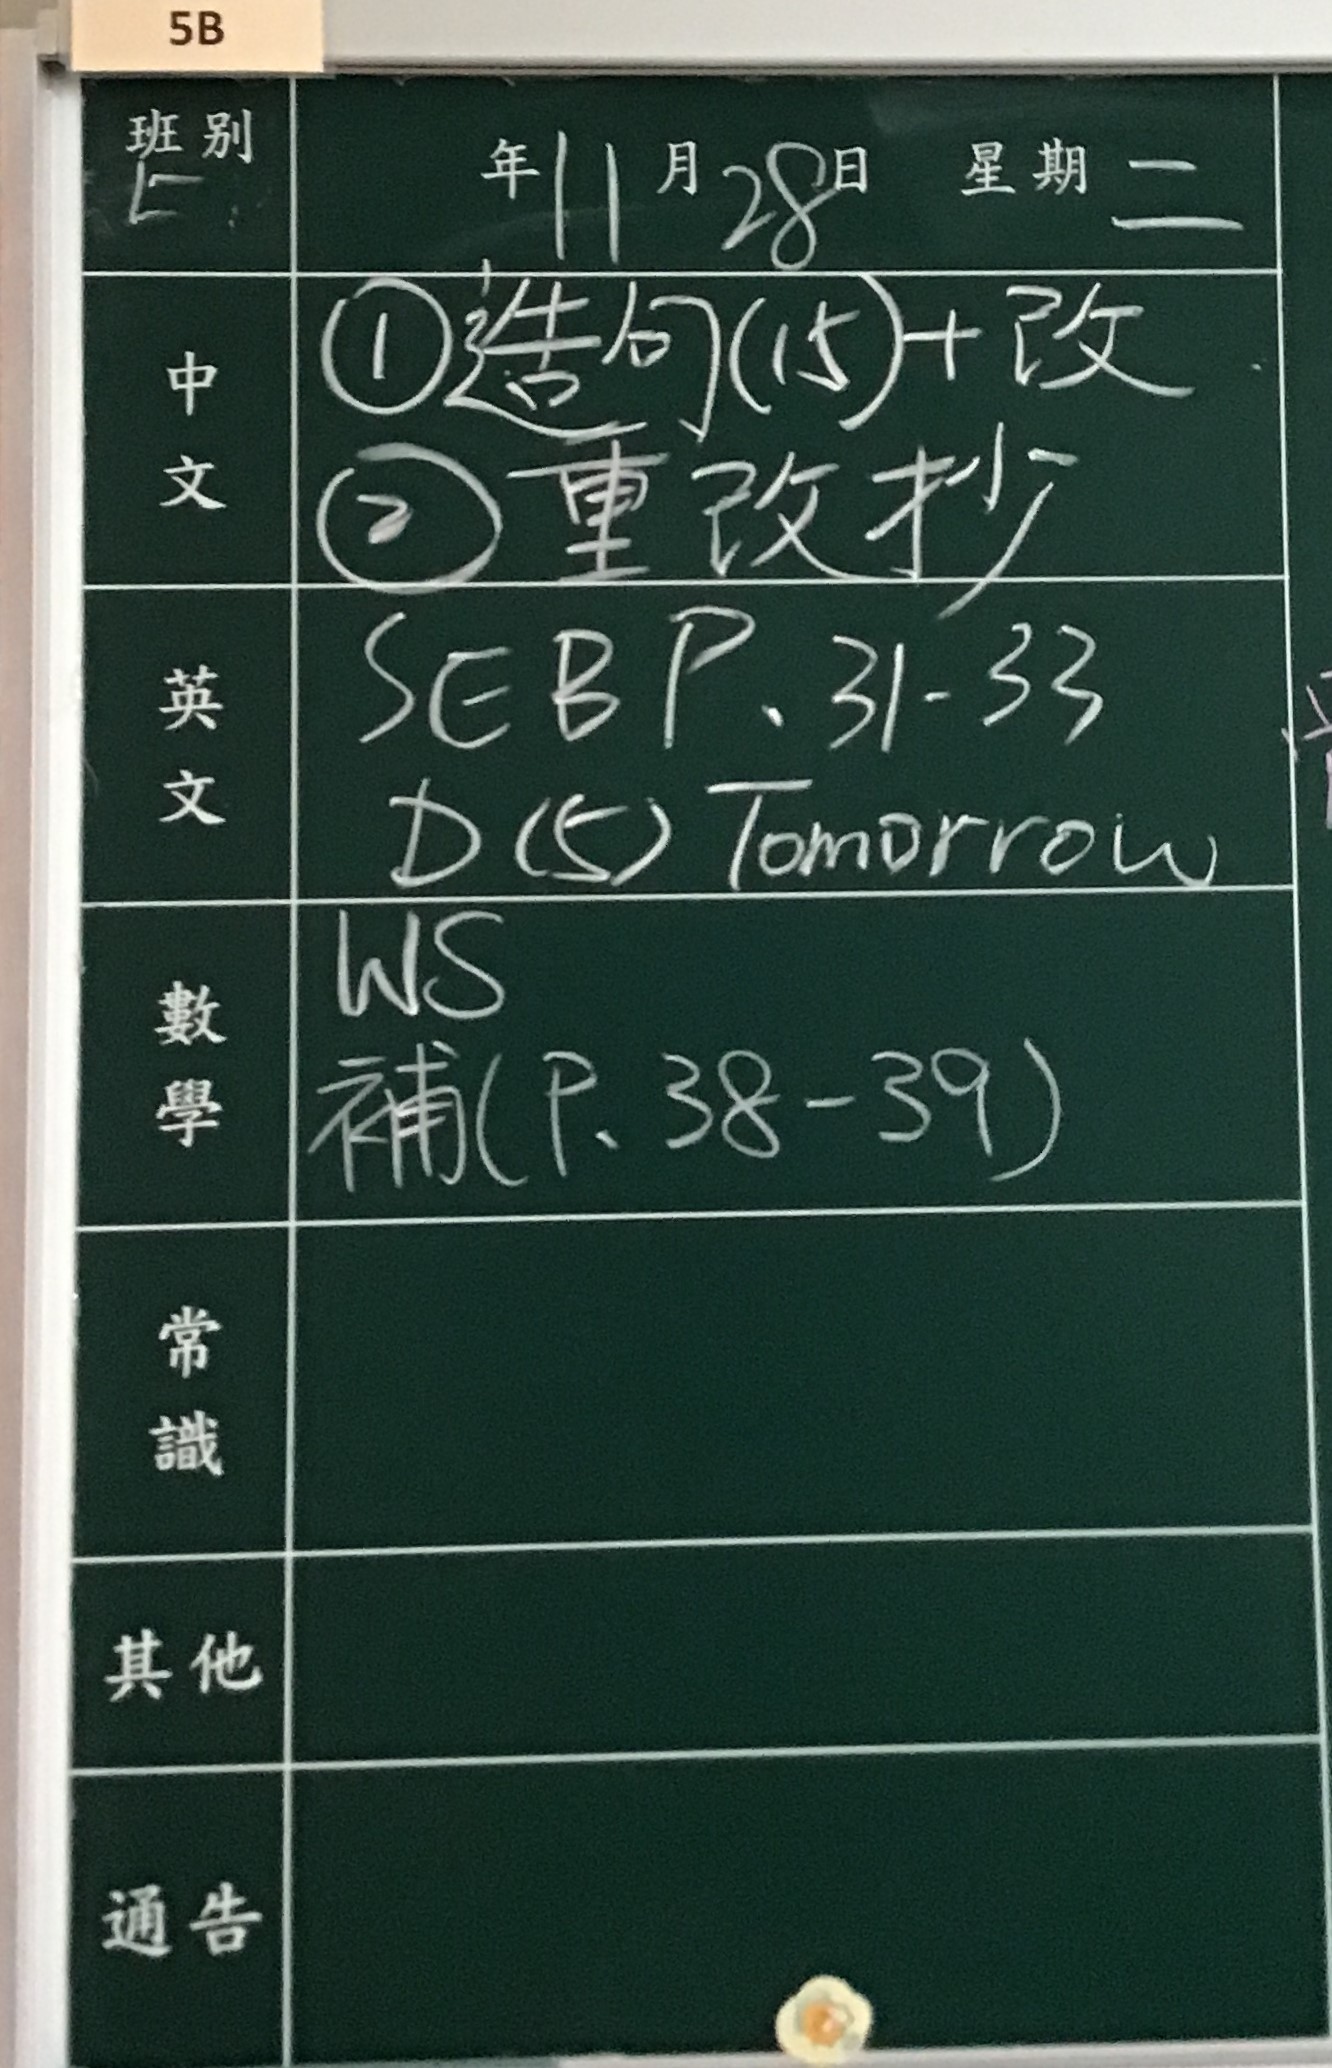 5B
班別
年11月28日 星期二
中文
①造句(15)+改
②重改抄
英文
SEB P.31-33
D(5) Tomorrow
數學
WS
補(P.38-39)
常識
其他
通告